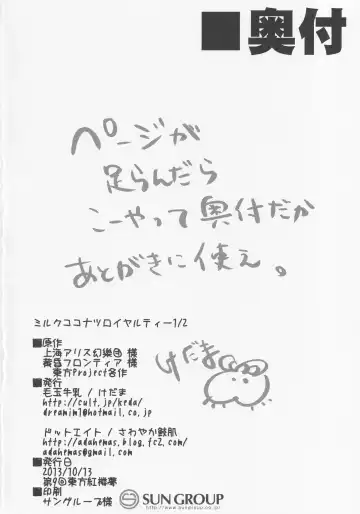 ■奥付
ページが
足らんだら
こーやって奥付だか
あとがきに使え。
けだま
ミルクココナツロイヤルティー1/2
■原作
上海アリス幻樂団 様
黄昏フロンティア 様
東方Project各作
■発行
毛玉牛乳 / けだま
http://cult.jp/keda/
dreamin1@hotmail.co.jp
ドットエイト / さわやか鮫肌
http://adahemas.blog.fc2.com/
adahemas@gmail.com
■発行日
2013/10/13
第9回東方紅楼夢
■印刷
サングループ様
SUN GROUP
http://www.sungroup.co.jp/